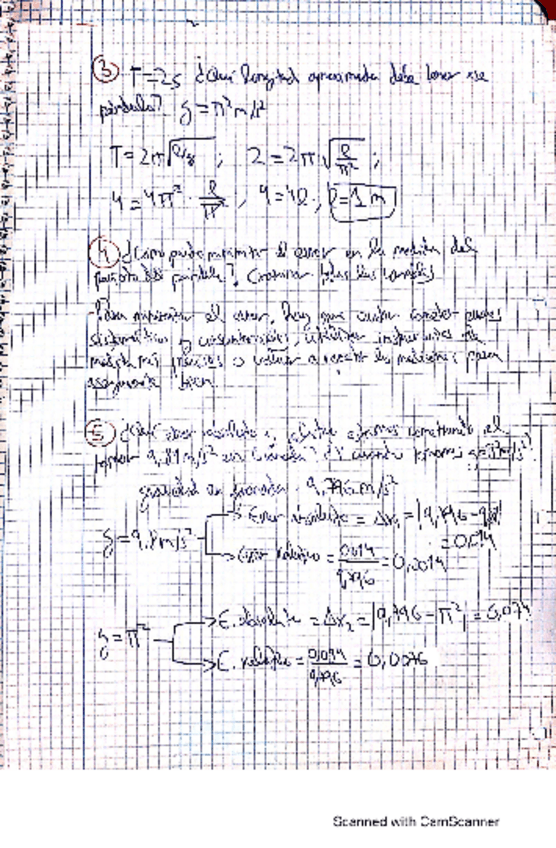 ③ T=2s ¿Qué longitud aproximada debe tener ese
péndulo? g=π² m/s²
T=2π√(l/g) ; 2=2π√(l/π²) ;
4=4π²·l/π² , 4=4l , l=1 m
④ ¿Cómo puede minimizar el error en la medida del
periodo del péndulo?
Para minimizar el error, hay que evitar cometer
sistemáticos y circunstanciales, utilizar instrumentos de
medida más precisos o volver a las mediciones para
asegurarte bien.
⑤ ¿Qué error absoluto y relativo cometiendo al
tomar 9,81 m/s² en Granada? ¿Y cuando
gravedad en Granada: 9,796 m/s²
g=9,8 m/s² Error absoluto = Δx₁ = |9,796-9,81|
=0,014
Error relativo = 0,014/9,796 = 0,0014
g=π² E. absoluto = Δx₂ = |9,796-π²| = 0,074
E. relativo = 0,074/9,796 = 0,0076
Scanned with CamScanner